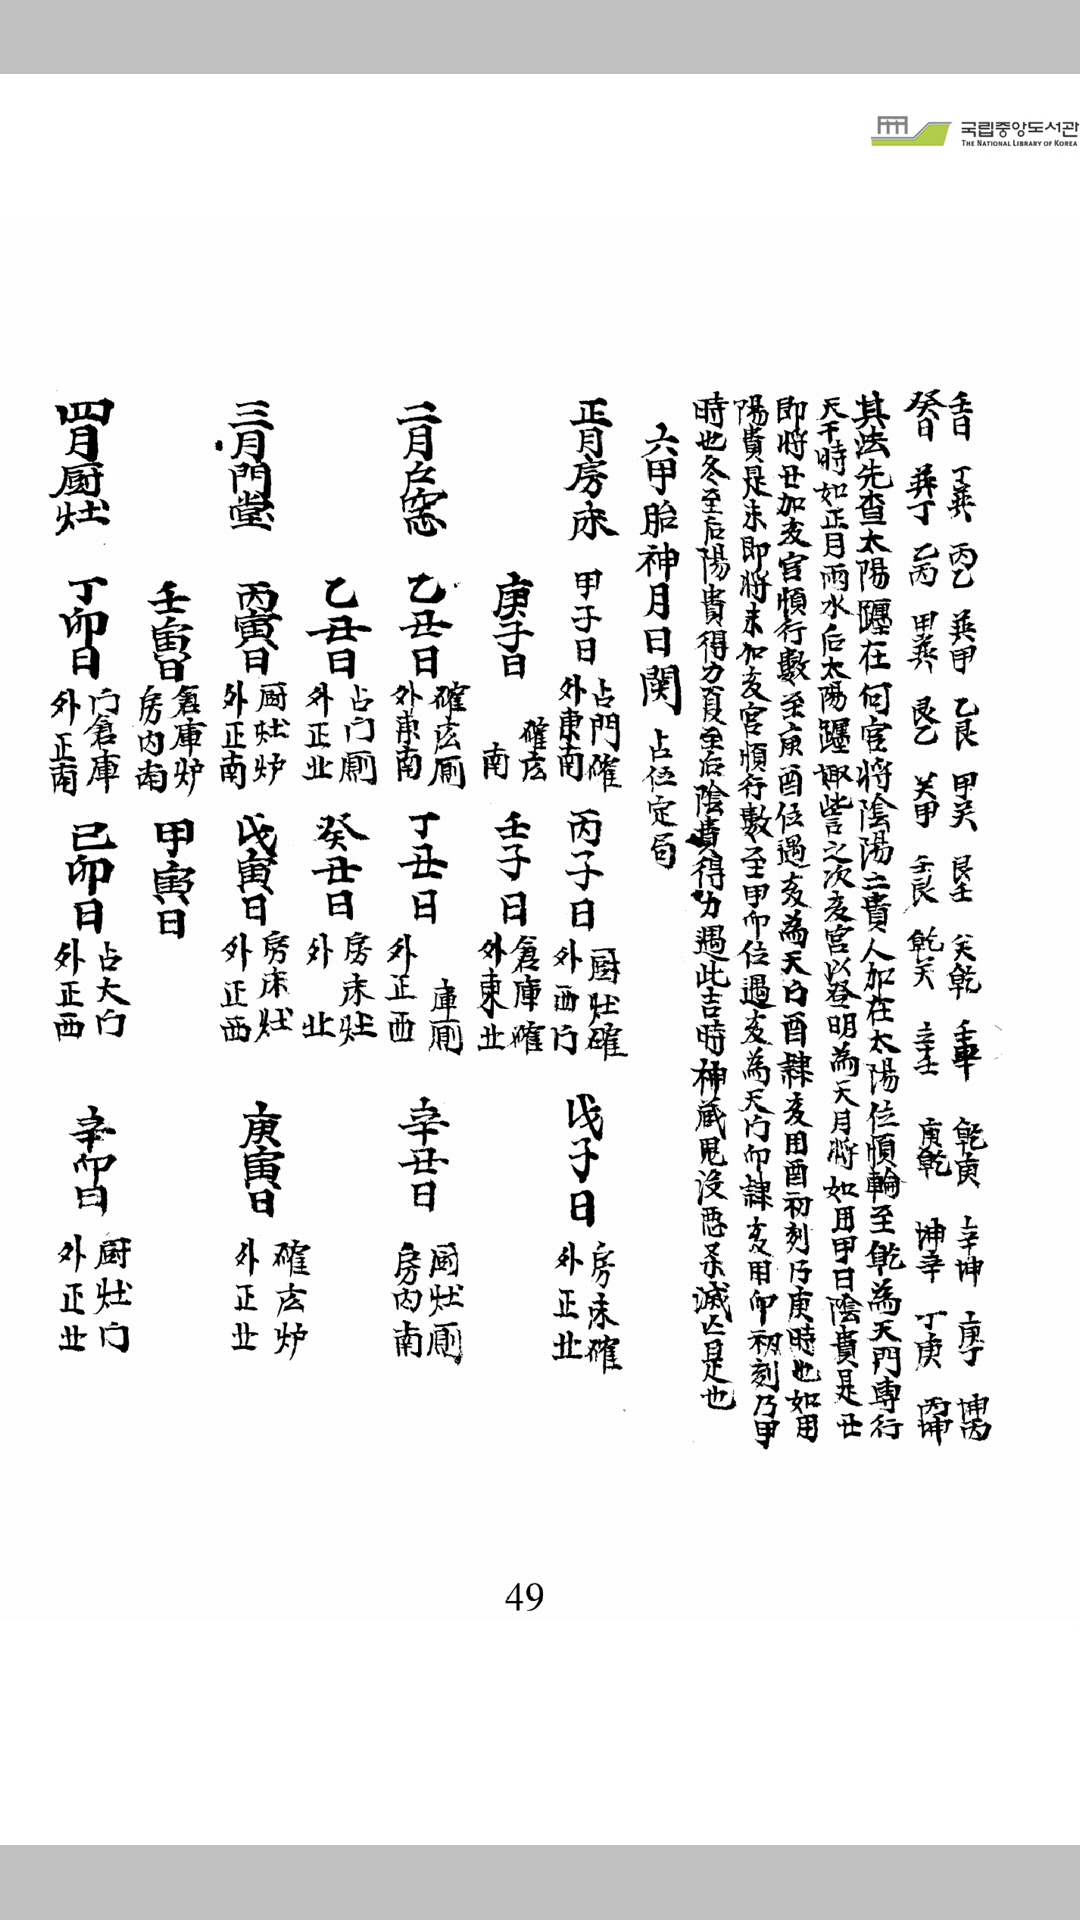 국립중앙도서관
THE NATIONAL LIBRARY OF KOREA
壬日 丁癸 丙乙 癸甲 乙艮 甲癸 艮壬 癸乾 壬辛 乾庚 辛坤 庚丁 坤丙
癸日 癸丁 乙丙 甲癸 艮乙 癸甲 壬艮 乾癸 辛壬 庚乾 坤辛 丁庚 丙坤
其法先查太陽躔在何宮將陰陽二貴人加在太陽位順輪至乾為天門專行
天干時如正月雨水后太陽躔娵訾之次亥宮以登明為天月將如用甲日陰貴是丑
即將丑加亥宮順行數至庚酉位過亥為天门酉隸亥用酉初刻乃庚時也如用
陽貴是未即將未加亥宮順行數至甲卯位過亥為天门卯隸亥用卯初刻乃甲
時也冬至后陽貴得力夏至后陰貴得力遇此吉時神藏鬼沒惡杀滅亡是也
六甲胎神月日関 占位定局
正月房床 甲子日 占門確 外東南 丙子日 厨灶確 外西门 戊子日 房床確 外正北
庚子日 確玄 南 壬子日 倉庫確 外東北
二月户窓 乙丑日 確玄厠 外東南 丁丑日 庫厠 外正西 辛丑日 厨灶厠 房内南
乙丑日 占门厠 外正北 癸丑日 房床灶 外北
三月門堂 丙寅日 厨灶炉 外正南 戊寅日 房床灶 外正西 庚寅日 確玄炉 外正北
壬寅日 倉庫炉 房内南 甲寅日
四月厨灶 丁卯日 门倉庫 外正南 己卯日 占大门 外正西 辛卯日 厨灶门 外正北
49